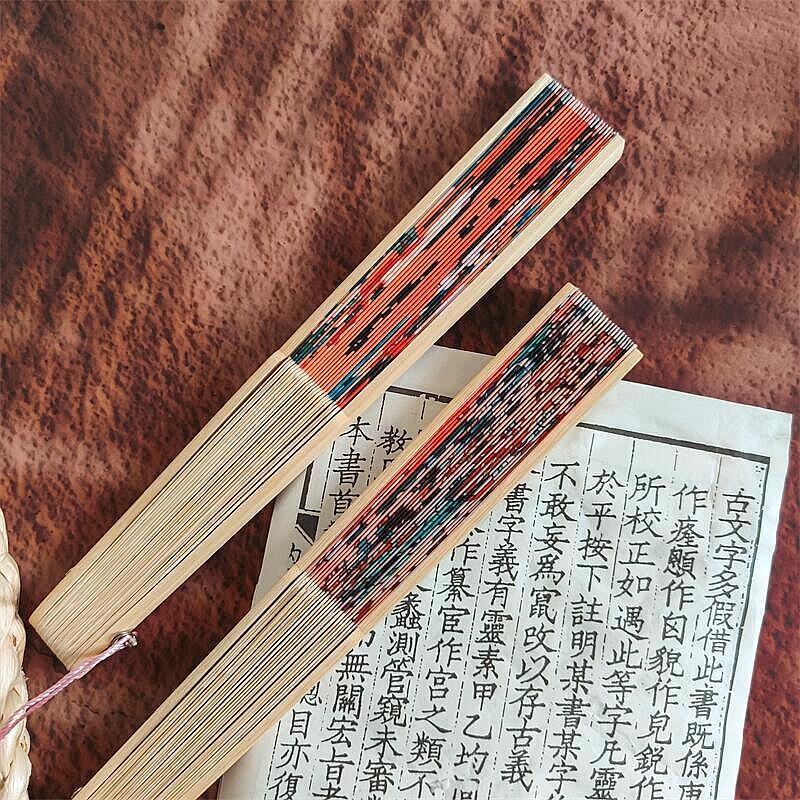 古文字多假借此書既係
作瘞顖作囟貌作皃銳作
所校正如遇此等字凡靈
於平按下註明某書某字
不敢妄爲竄改以存古義
書字義有靈素甲乙均
作纂宦作宮之類不
蠡測管窺未審
無關宏旨者
本書首
目亦復